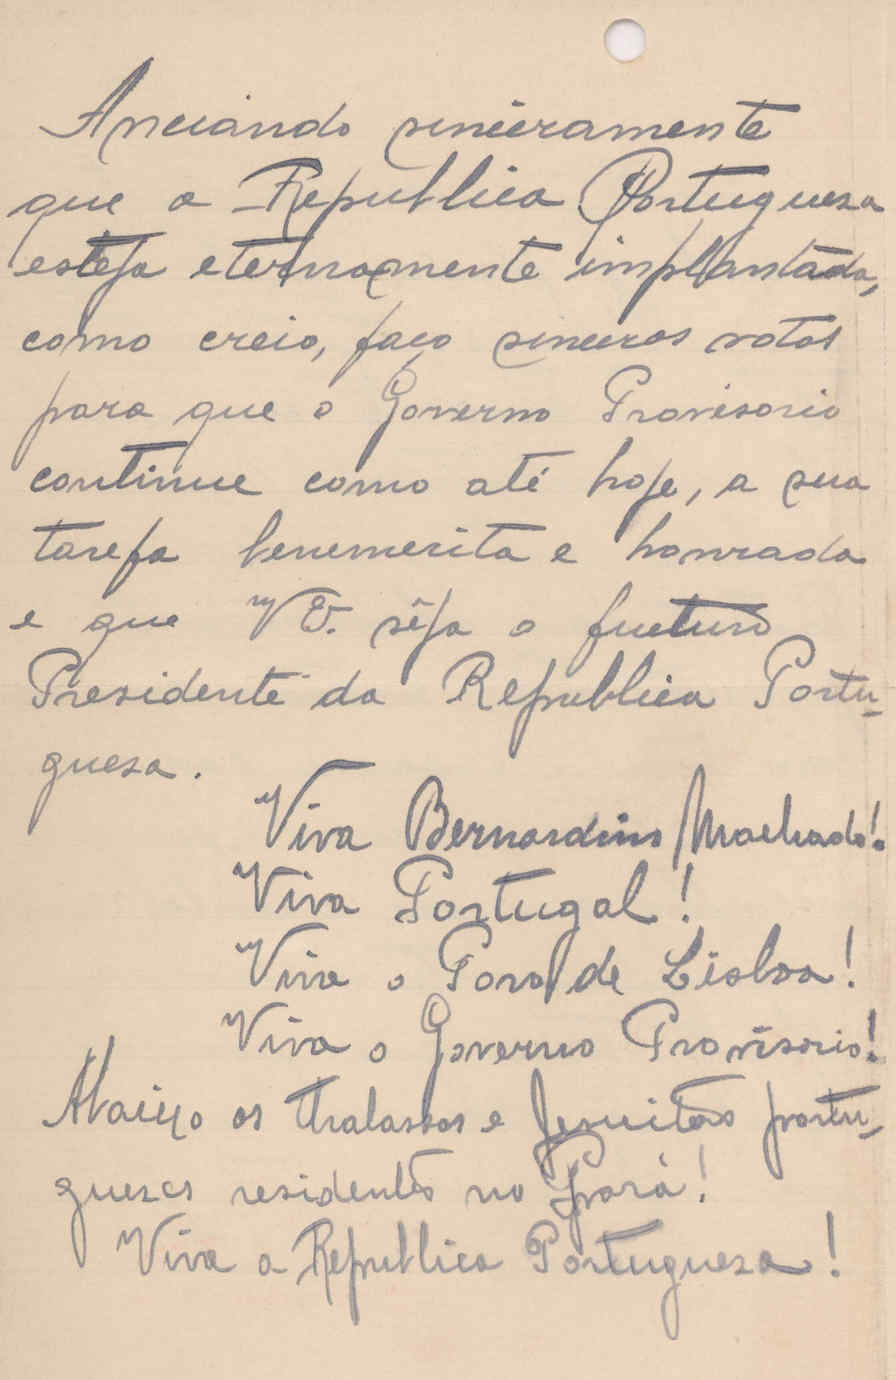 Anciando sinceramente
que a Republica Portugueza
esteja eternamente implantada,
como creio, faço sinceros votos
para que o Governo Provisorio
continue como até hoje, a sua
tarefa benemerita e honrada
e que V. Ex. sêja o futuro
Presidente da Republica Portu-
gueza.
Viva Bernardino Machado!
Viva Portugal!
Viva o Povo de Lisboa!
Viva o Governo Provisorio!
Abaixo os thalassas e Jesuitas portu-
guezes residentes no Pará!
Viva a Republica Portugueza!